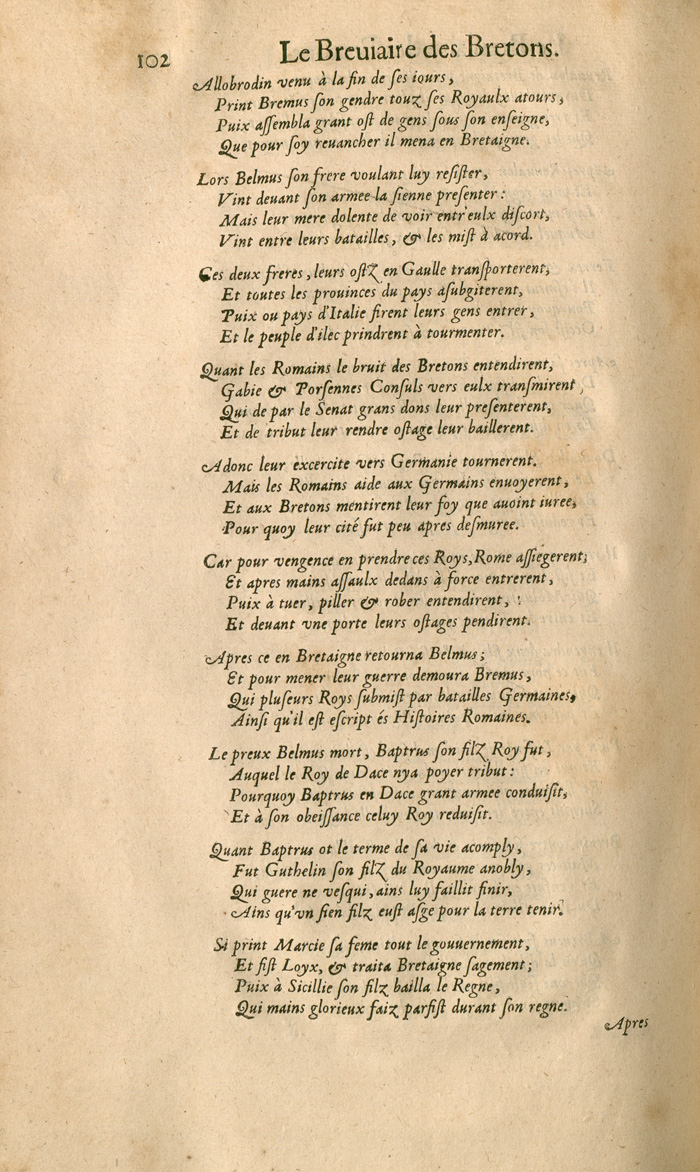 102
Le Breuiaire des Bretons.
Allobrodin venu à la fin de ſes iours,
Print Bremus ſon gendre touz ſes Royaulx atours,
Puix aſſembla grant oſt de gens ſous ſon enſeigne,
Que pour ſoy reuancher il mena en Bretaigne.
Lors Belmus ſon frere voulant luy reſiſter,
Vint deuant ſon armee la ſienne preſenter:
Mais leur mere dolente de voir entr'eulx diſcort,
Vint entre leurs batailles, & les miſt à acord.
Ces deux freres, leurs oſtz en Gaulle tranſporterent,
Et toutes les prouinces du pays aſubgiterent,
Puix ou pays d'Italie firent leurs gens entrer,
Et le peuple d'ilec prindrent à tourmenter.
Quant les Romains le bruit des Bretons entendirent,
Gabie & Porſennes Conſuls vers eulx tranſmirent,
Qui de par le Senat grans dons leur preſenterent,
Et de tribut leur rendre oſtage leur baillerent.
Adonc leur excercite vers Germanie tournerent.
Mais les Romains aide aux Germains enuoyerent,
Et aux Bretons mentirent leur foy que auoint iuree,
Pour quoy leur cité fut peu apres deſmuree.
Car pour vengence en prendre ces Roys, Rome aſſiegerent;
Et apres mains aſſaulx dedans à force entrerent,
Puix à tuer, piller & rober entendirent,
Et deuant vne porte leurs oſtages pendirent.
Apres ce en Bretaigne retourna Belmus;
Et pour mener leur guerre demoura Bremus,
Qui pluſeurs Roys ſubmiſt par batailles Germaines,
Ainſi qu'il eſt eſcript és Hiſtoires Romaines.
Le preux Belmus mort, Baptrus ſon filz Roy fut,
Auquel le Roy de Dace nya poyer tribut:
Pourquoy Baptrus en Dace grant armee conduiſit,
Et à ſon obeiſſance celuy Roy reduiſit.
Quant Baptrus ot le terme de ſa vie acomply,
Fut Guthelin ſon filz du Royaume anobly,
Qui guere ne veſqui, ains luy faillit finir,
Ains qu'vn ſien filz euſt aſge pour la terre tenir.
Si print Marcie ſa feme tout le gouuernement,
Et fiſt Loyx, & traita Bretaigne ſagement;
Puix à Sicillie ſon filz bailla le Regne,
Qui mains glorieux faiz parfiſt durant ſon regne.
Apres